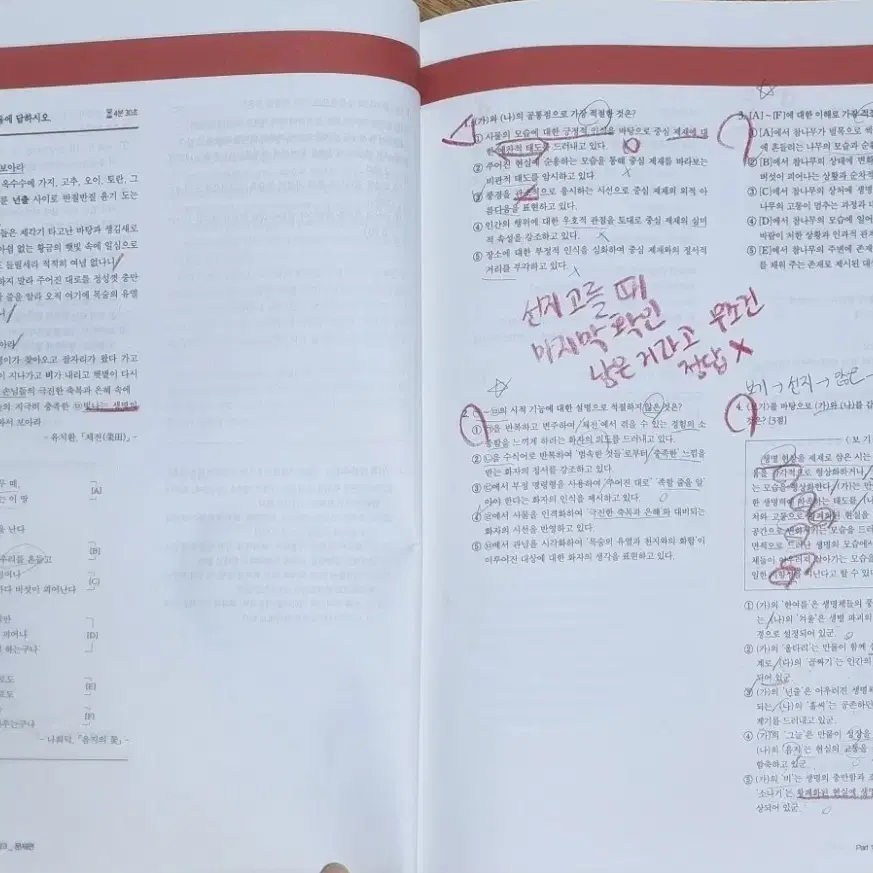 음에 답하시오.
4분 30초
보아라
옥수수에 가지, 고추, 오이, 토란, 그
넌출 사이로 반질반질 윤기 도는
들은 제각기 타고난 바탕과 생김새로
아쉼 없는 황금의 햇빛 속에 일심으로
들릴세라 적적히 여념 없나니
하지 말라 주어진 대로를 정성껏 충만
줄을 알라 오직 여기에 목숨의 유열
이가 찾아오고 잠자리가 왔다 가고
이 지나가고 비가 내리고 햇볕이 다시
손님들의 극진한 축복과 은혜 속에
지극히 충족한 빛나는 생명의
와서 보아라
- 유치환, 「채전(菜田)」 -
[A]
난다
우리를 흔들고
[B]
다 버섯이 피어난다
[C]
피어나
[D]
하는구나
[E]
[F]
주는구나
- 나희덕, 「음지의 꽃」 -
문제편
1. (가)와 (나)의 공통점으로 가장 적절한 것은?
① 사물의 모습에 대한 긍정적 인식을 바탕으로 중심 제재에 대
한 예찬적 태도를 드러내고 있다.
② 주어진 현실에 순응하는 모습을 통해 중심 제재를 바라보는
비관적 태도를 암시하고 있다.
③ 풍경을 관조적으로 응시하는 시선으로 중심 제재의 외적 아
름다움을 표현하고 있다.
④ 인간의 행위에 대한 우호적 관점을 토대로 중심 제재의 심미
적 속성을 강조하고 있다.
⑤ 장소에 대한 부정적 인식을 심화하여 중심 제재와의 정서적
거리를 부각하고 있다.
선지 고를 때
마지막 확인
남은 거라고 무조건
정답 X
2. ㉠~㉤의 시적 기능에 대한 설명으로 적절하지 않은 것은?
① ㉠을 반복하고 변주하여 '채전'에서 겪을 수 있는 경험의 소
중함을 느끼게 하려는 화자의 의도를 드러내고 있다.
② ㉡을 수식어로 반복하여 '범속한 것들'로부터 충족한 느낌을
받는 화자의 정서를 강조하고 있다.
③ ㉢에서 부정 명령형을 사용하여 '주어진 대로' '족할 줄을 알'
아야 한다는 화자의 인식을 제시하고 있다.
④ ㉣에서 사물을 인격화하여 '극진한 축복과 은혜'와 대비되는
화자의 시선을 반영하고 있다.
⑤ ㉤에서 관념을 시각화하여 '목숨의 유열과 천지와의 화합'이
이루어진 대상에 대한 화자의 생각을 표현하고 있다.
3. [A]~[F]에 대한 이해로 가장 적절
① [A]에서 참나무가 벌목으로 썩
에 흔들리는 나무의 모습과 순환
② [B]에서 참나무의 상태에 변화
버섯이 피어나는 상황과 순차적
③ [C]에서 참나무의 상처에 생명
나무의 고통이 멈추는 과정과 대
④ [D]에서 참나무의 모습에 일어
바람이 처한 상황과 인과적 관계
⑤ [E]에서 참나무의 주변에 존재
를 채워 주는 존재로 제시된 대상
보기 → 선지 →
4. <보기>를 바탕으로 (가)와 (나)를 감
것은? [3점]
<보기
생명 현상을 제재로 삼은 시는
음을 감각적으로 형상화하거나
는 모습을 형상화한다. (가)는 만
한 생명력에 참여하는 태도를, (나)
처와 고통으로 현실을
공간으로 변화하는 모습을 드러
면적으로 드러난 생명의 모습에서
체들이 어우러져 살아가는 모습을
지닌다고 할 수 있
① (가)의 '한여름'은 생명체들의 풍
는, (나)의 '겨울'은 생명 파괴의
경으로 설정되어 있군.
② (가)의 '울타리'는 만물이 함께
계로, (나)의 '골짜기'는 인간의
되어 있군.
③ (가)의 '넌출'은 어우러진 생명
되는, (나)의 '홀씨'는 공존하던
계기를 드러내고 있군.
④ (가)의 '그늘'은 만물이 성장을
(나)의 '음지'는 현실의 고통을
함축하고 있군.
⑤ (가)의 '비'는 생명의 충만함과 조
'소나기'는 황폐화된 현실에 생명
상되어 있군.
Part 1